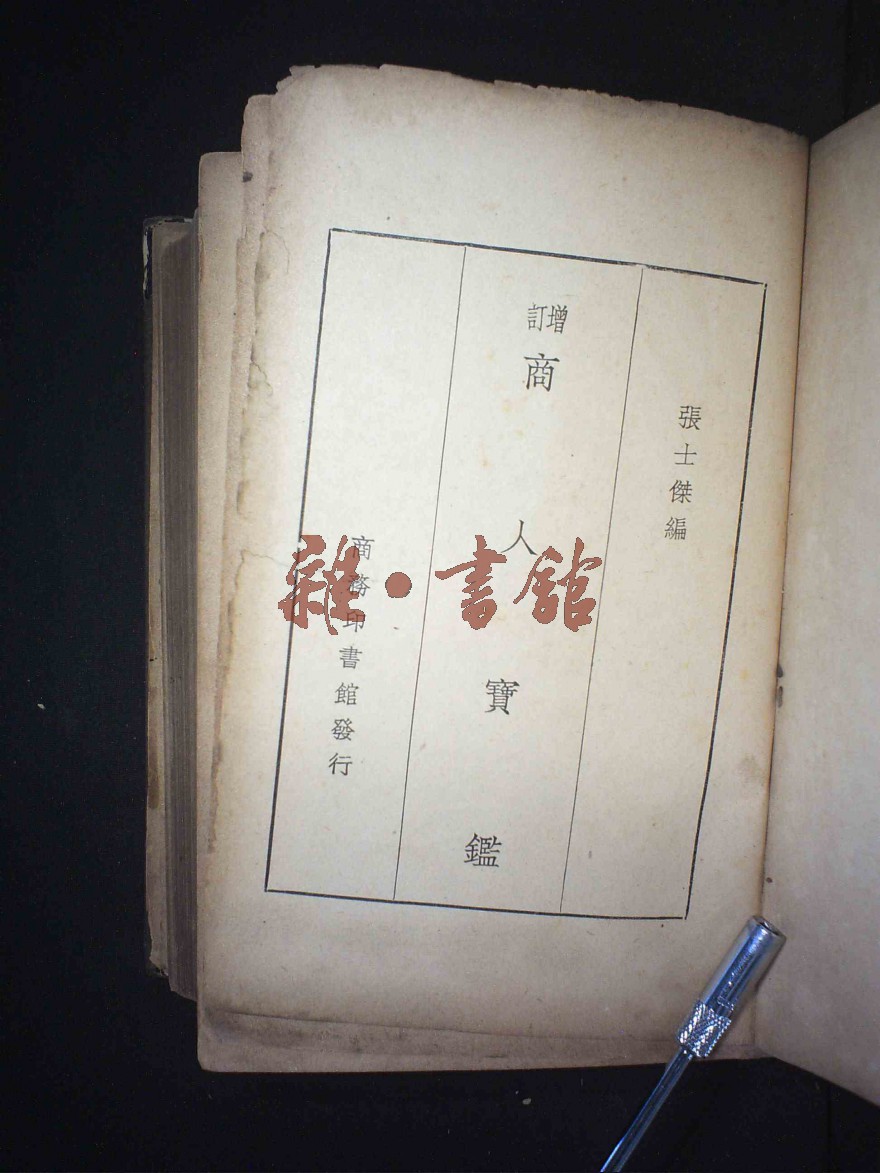 張士傑編
增訂商人寶鑑
商務印書館發行
雜·書館